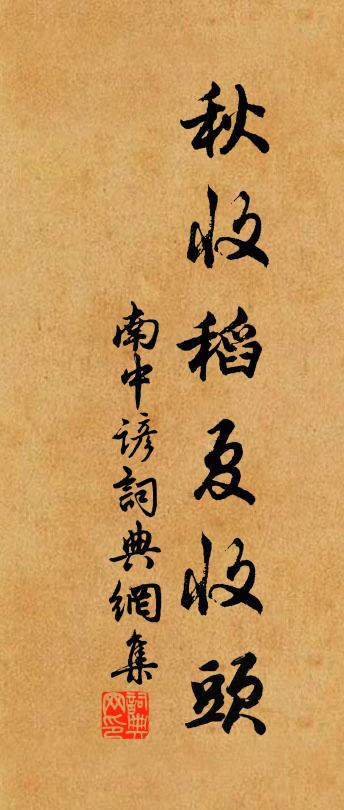 秋收稻夏收頭
南中諺詞典網集
詞典網印